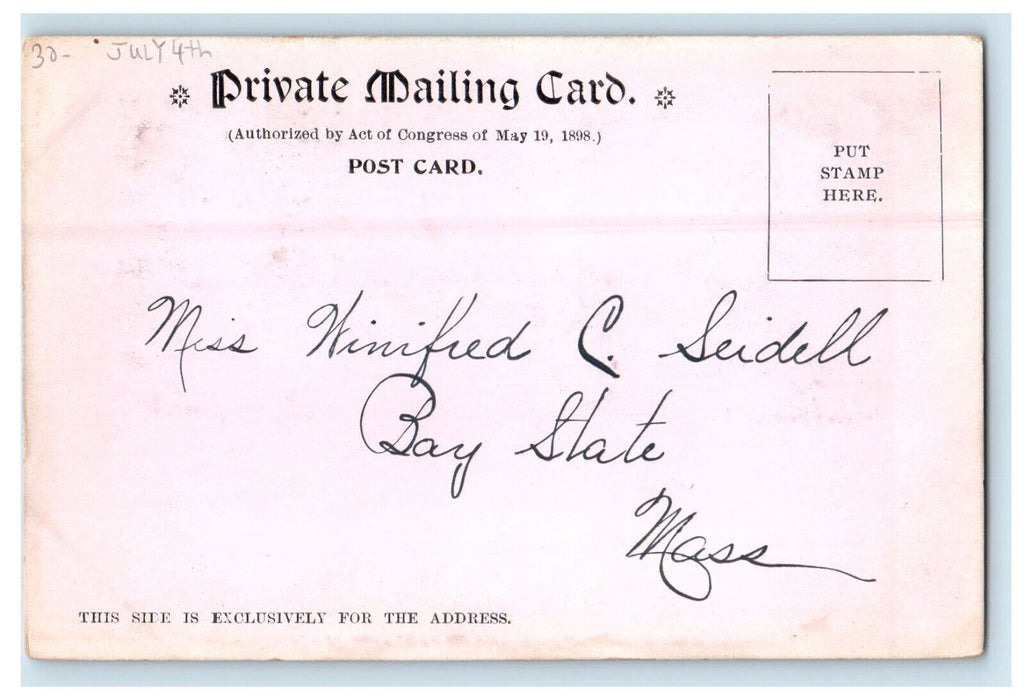 30- JULY 4th
Private Mailing Card.
(Authorized by Act of Congress of May 19, 1898.)
POST CARD.
PUT
STAMP
HERE.
Miss Winifred C. Seidell
Bay State
Mass
THIS SIDE IS EXCLUSIVELY FOR THE ADDRESS.